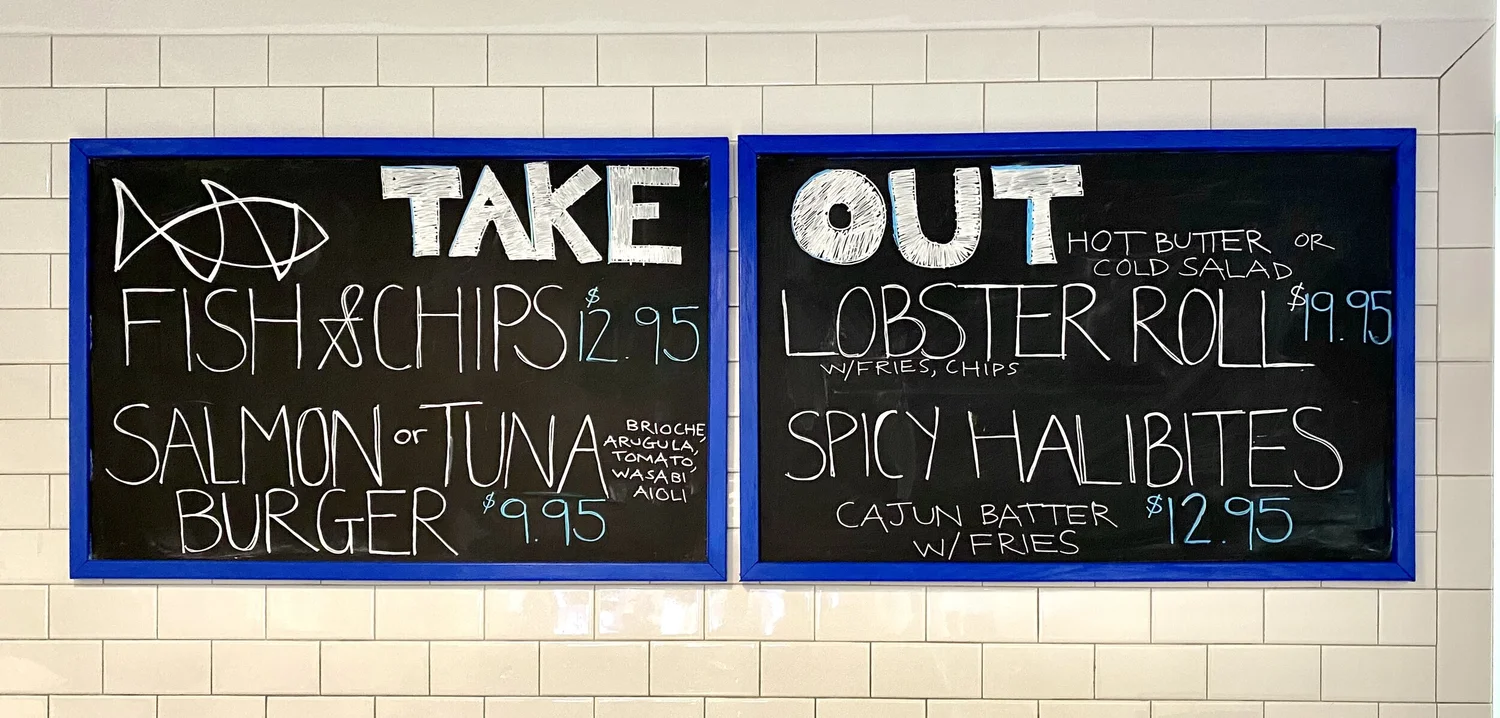 TAKE
FISH & CHIPS $12.95
SALMON or TUNA
BURGER $9.95
BRIOCHE,
ARUGULA,
TOMATO,
WASABI
AIOLI
OUT
HOT BUTTER OR
COLD SALAD
LOBSTER ROLL $19.95
W/FRIES, CHIPS
SPICY HALIBITES
CAJUN BATTER $12.95
W/FRIES